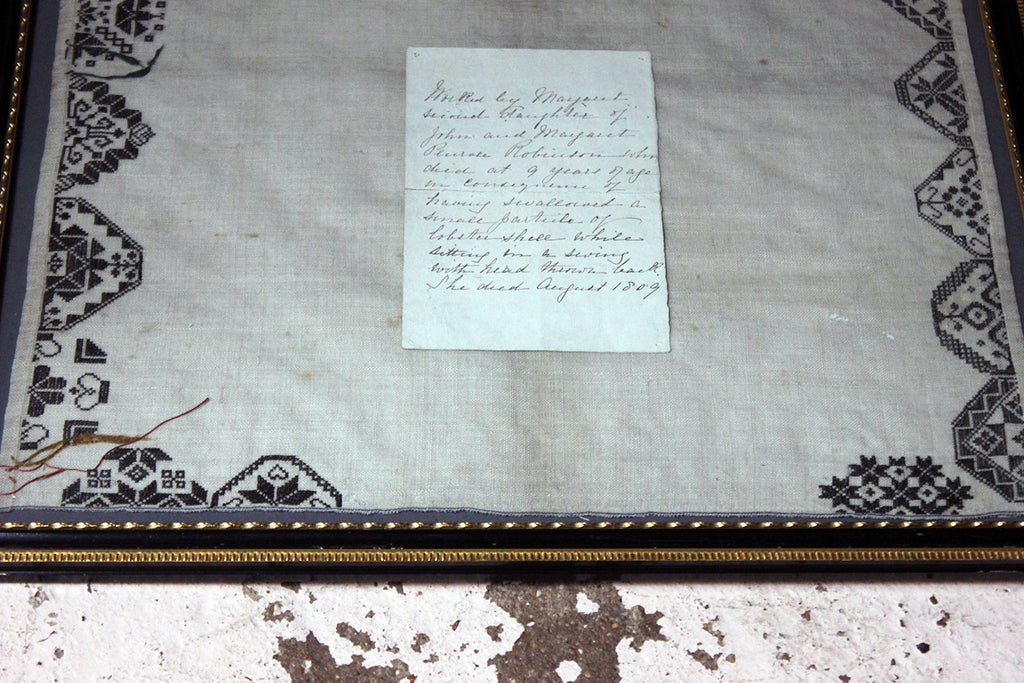 Worked by Margaret
second daughter of
John and Margaret
Penrose Robinson who
died at 9 years of age
in consequence of
having swallowed a
small particle of
lobster shell while
sitting on a swing
with head thrown back
She died August 1809